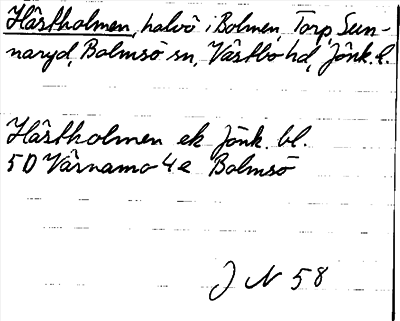 Hästholmen, halvö i Bolmen, Torp, Sun-
naryd, Bolmsö sn, Västbo hd, Jönk. l.
Hästholmen ek Jönk. bl.
5D Värnamo 4e Bolmsö
J N 58